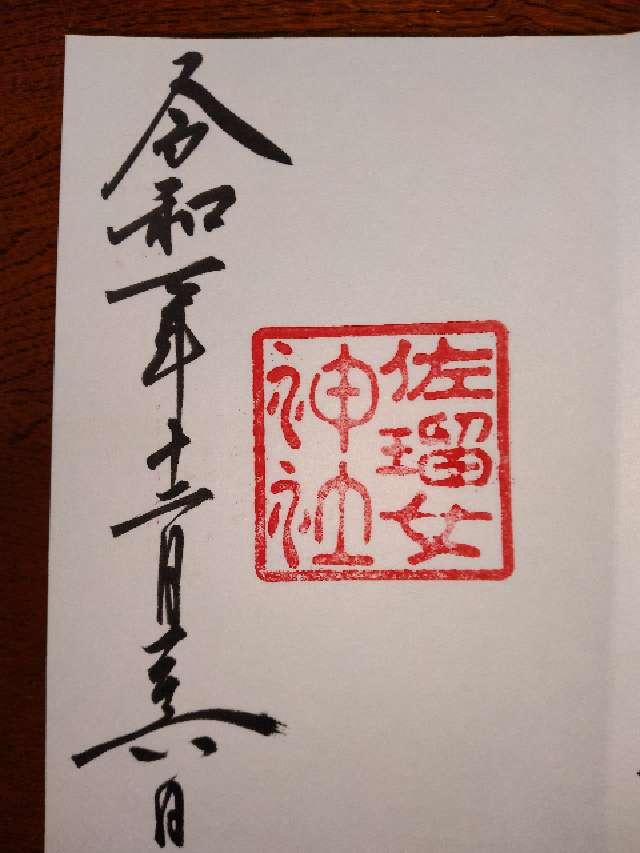 佐瑠女
神社
令和 年十二月二十六日